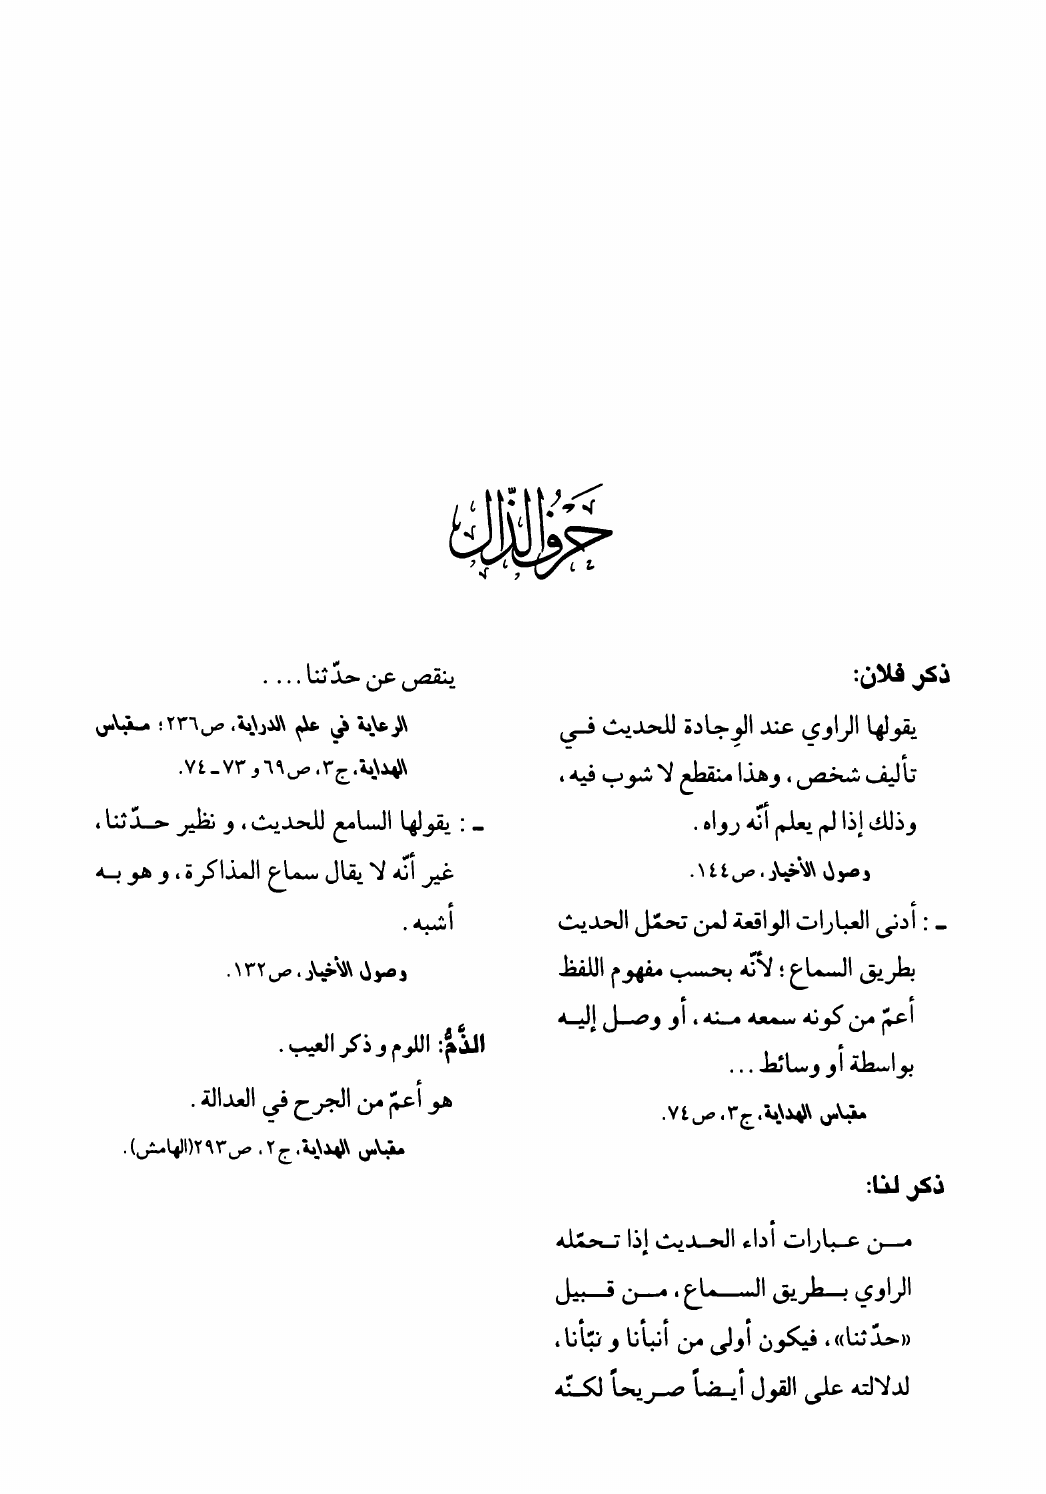 حَرفُ الذّال
ذكر فلان:
يقولها الراوي عند الوِجادة للحديث فـي
تأليف شخص، وهذا منقطع لا شوب فيه،
وذلك إذا لم يعلم أنّه رواه.
وصول الأخيار، ص١٤٤.
ـ : أدنى العبارات الواقعة لمن تحمّل الحديث
بطريق السماع؛ لأنّه بحسب مفهوم اللفظ
أعمّ من كونه سمعه مـنه، أو وصـل إليـه
بواسطة أو وسائط...
مقباس الهداية، ج٣، ص٧٤.
ذكر لنا:
مـن عـبارات أداء الحـديث إذا تـحمّله
الراوي بـطريق السـماع، مـن قـبيل
«حدّثنا»، فيكون أولى من أنبأنا و نبّأنا،
لدلالته على القول أيـضاً صـريحاً لكـنّه
ينقص عن حدّثنا....
الرعاية في علم الدراية، ص٢٣٦؛ مـقباس
الهداية، ج٣، ص٦٩ و ٧٣ ـ ٧٤.
ـ : يقولها السامع للحديث، و نظير حـدّثنا،
غير أنّه لا يقال سماع المذاكرة، و هو بـه
أشبه.
وصول الأخيار، ص١٣٢.
الذَّمُّ: اللوم و ذكر العيب.
هو أعمّ من الجرح في العدالة.
مقباس الهداية، ج٢، ص٢٩٣(الهامش).